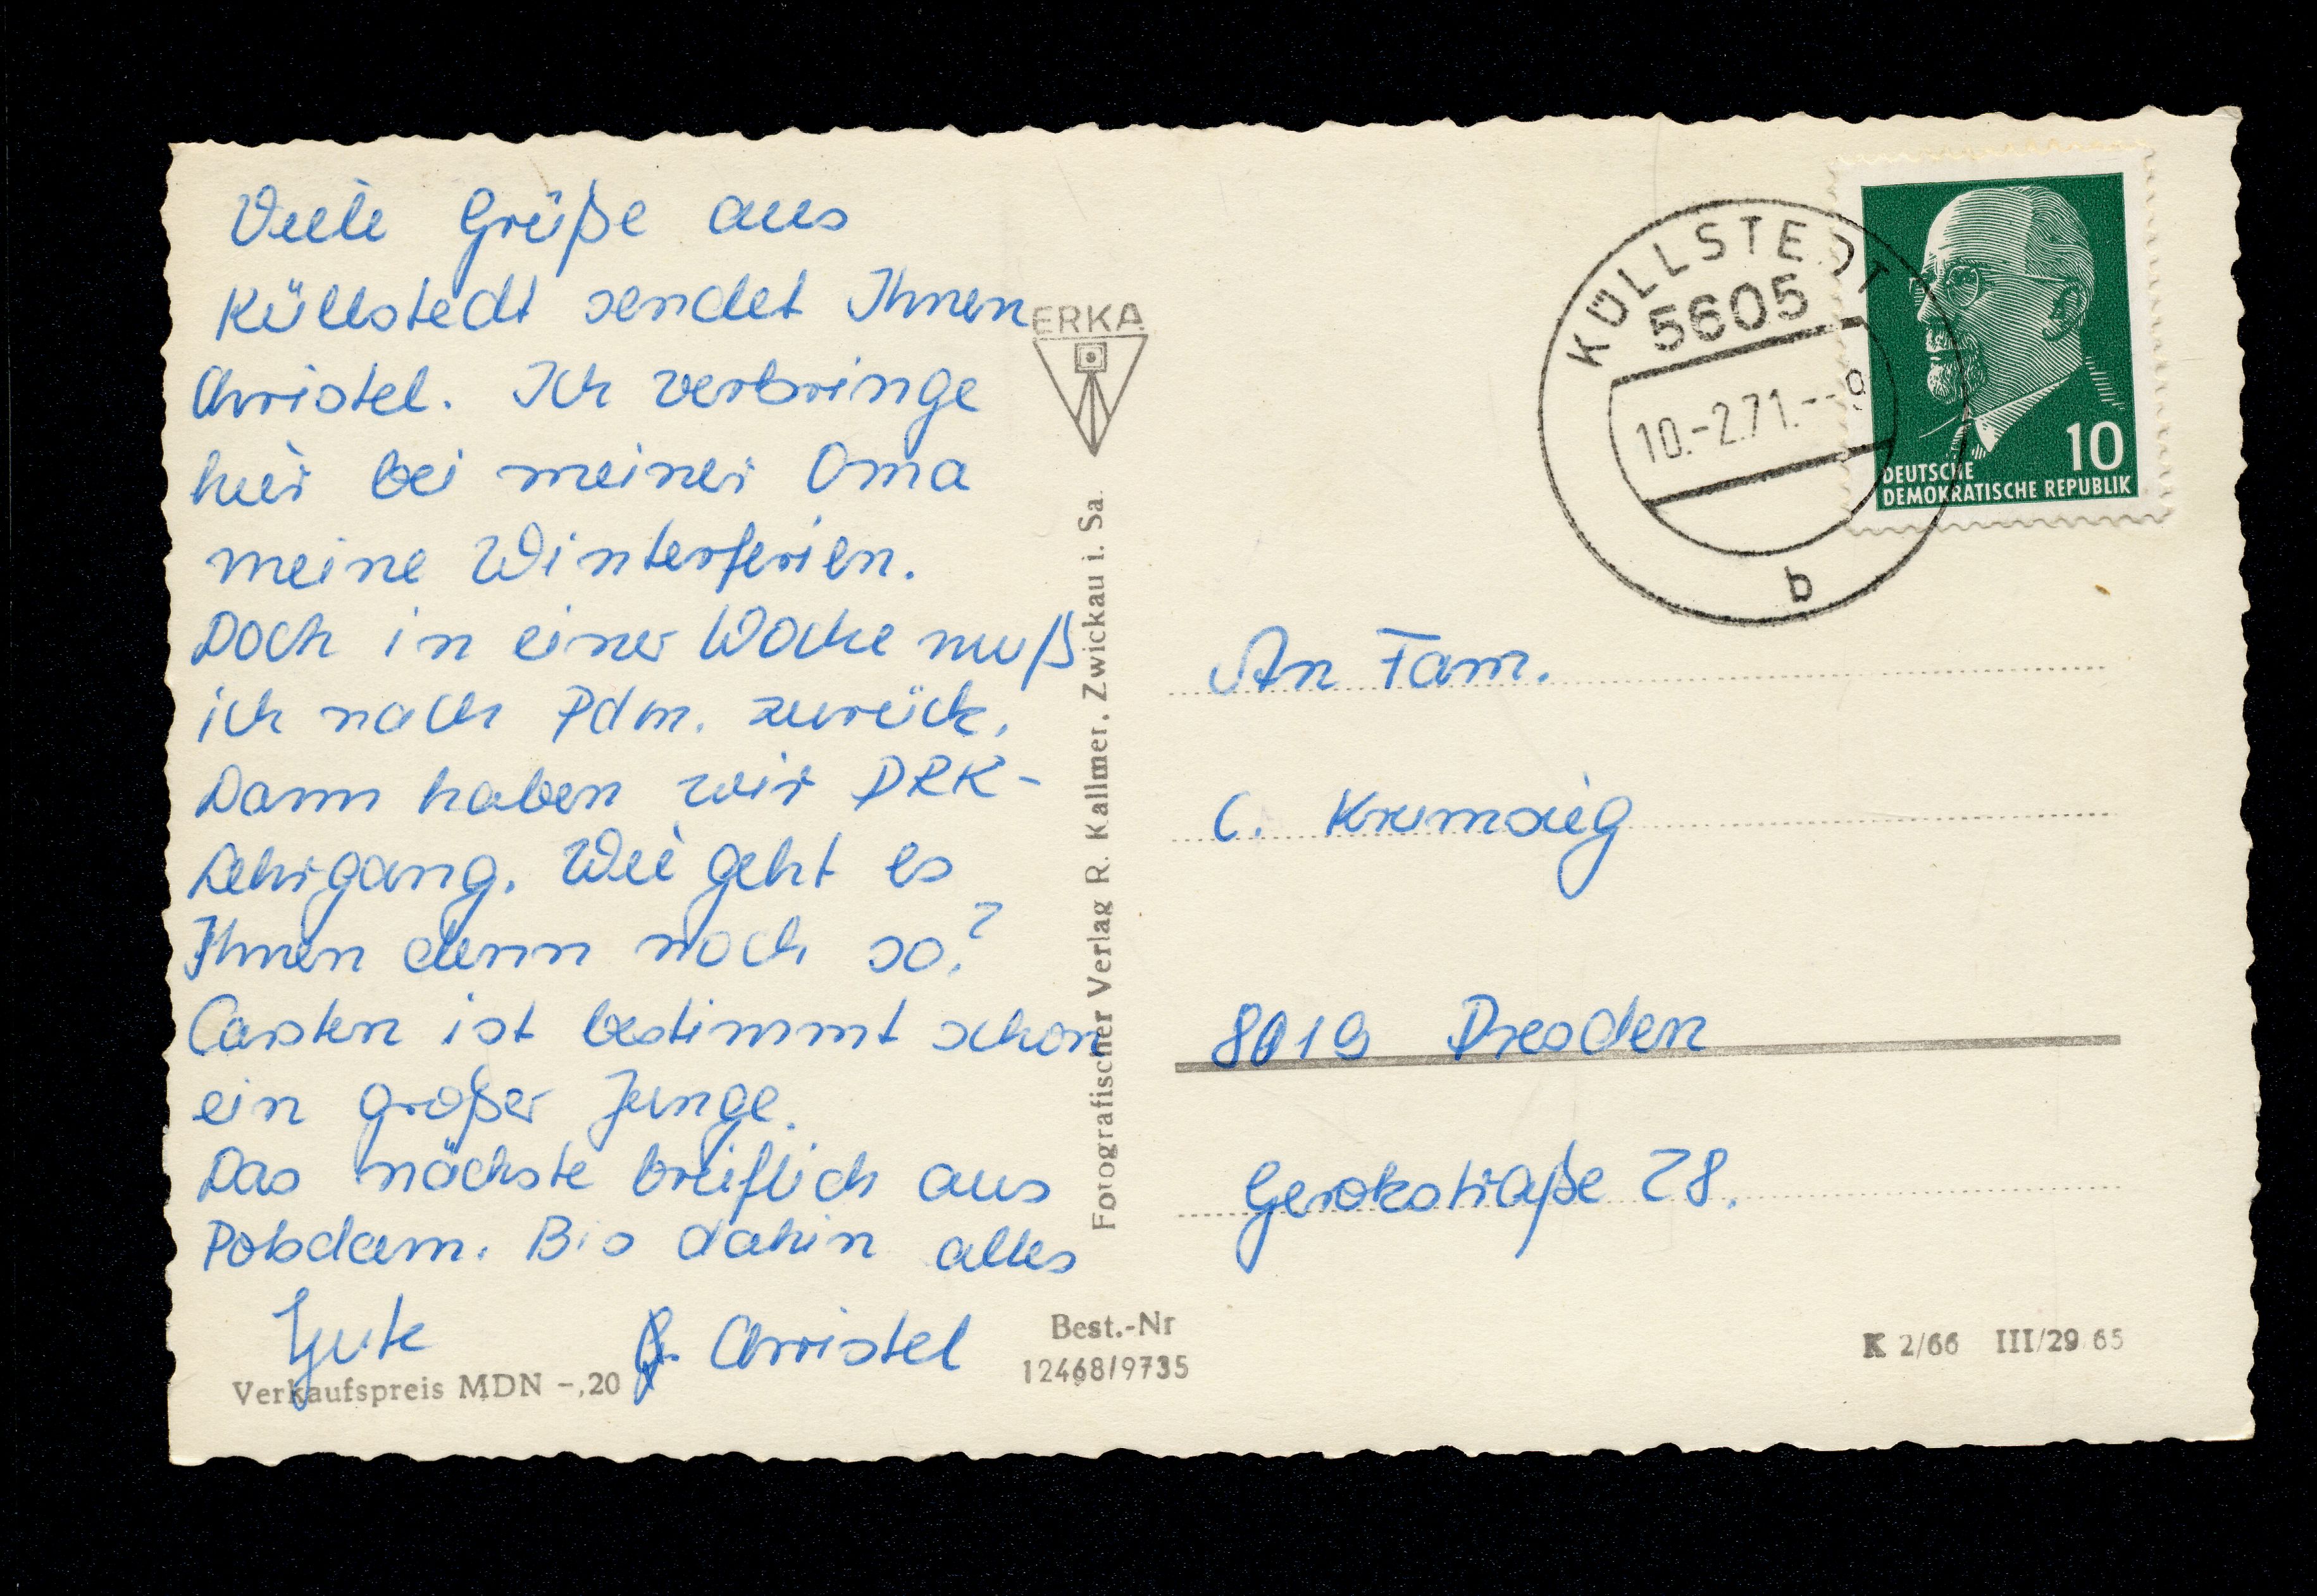 Viele Grüße aus
Küllstedt sendet Ihnen
Christel. Ich verbringe
hier bei meiner Oma
meine Winterferien.
Doch in einer Woche muß
ich nach Pdm. zurück.
Dann haben wir DRK-
Lehrgang. Wie geht es
Ihnen denn noch so?
Carsten ist bestimmt schon
ein großer Junge.
Das nächste breiflich aus
Potsdam. Bis dahin alles
Gute
Christel
Verkaufspreis MDN -,20
ERKA
Fotografischer Verlag R. Kallmer, Zwickau i. Sa.
Best.-Nr
12468/9735
KÜLLSTEDT
5605
10.-2.71.--9
b
10
DEUTSCHE
DEMOKRATISCHE REPUBLIK
An Fam.
C.
8019 Dresden
Gerokstraße 28.
K 2/66 III/29 65